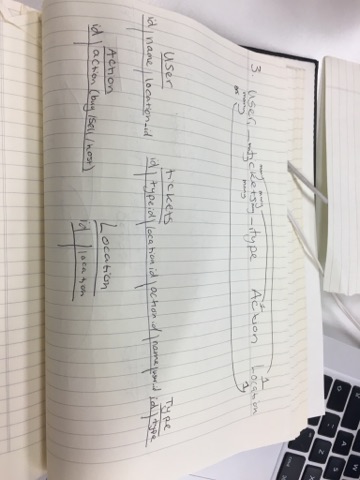 3 User - tickets - type Action Location
many many many
1 1
User
id | name | location-id
tickets
id | typeid | locationid | actionid | name
Type
id | type
Action
id | action (buy/sell/host)
Location
id | location